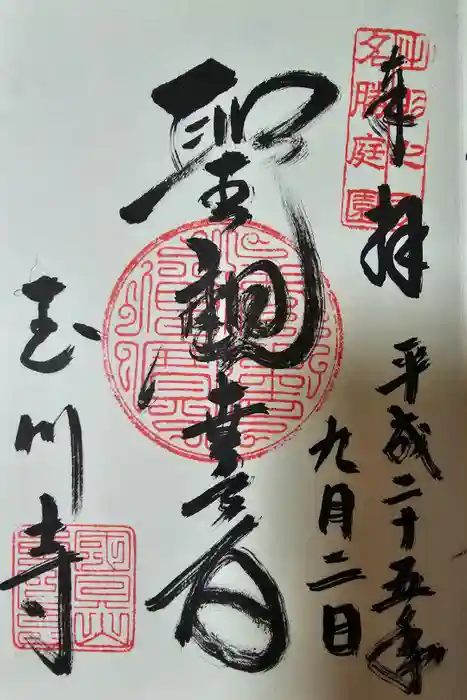 奉拝
平成二十五年
九月二日
聖観世音
玉川寺
名勝庭園